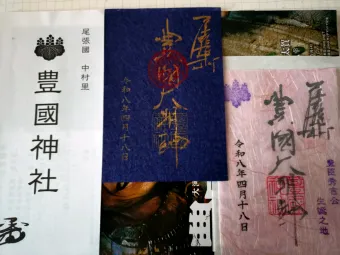 尾張國 中村里
豊國神社
奉拝
豊國大明神
令和八年四月十八日
奉拝
豊國大明神
令和八年四月十八日
豊臣秀吉公
生誕之地